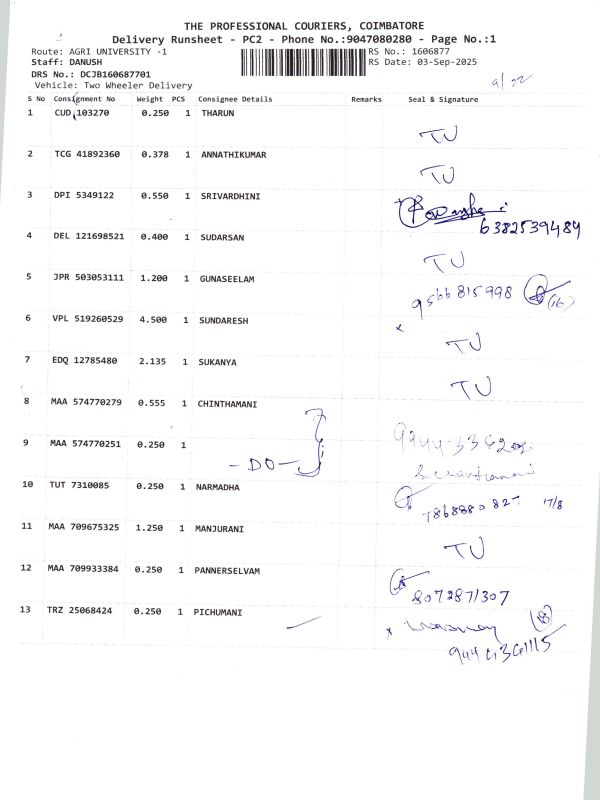 THE PROFESSIONAL COURIERS, COIMBATORE
Delivery Runsheet - PC2 - Phone No.:9047080280 - Page No.:1
Route: AGRI UNIVERSITY -1 RS No.: 1606877
Staff: DANUSH RS Date: 03-Sep-2025
DRS No.: DCJB160687701
Vehicle: Two Wheeler Delivery
S No Consignment No Weight PCS Consignee Details Remarks Seal & Signature
1 CUD 103270 0.250 1 THARUN
TU
2 TCG 41892360 0.378 1 ANNATHIKUMAR
TU
3 DPI 5349122 0.550 1 SRIVARDHINI
6382539489
4 DEL 121698521 0.400 1 SUDARSAN
TU
5 JPR 503053111 1.200 1 GUNASEELAM
9566815998 (16)
6 VPL 519260529 4.500 1 SUNDARESH
x TU
7 EDQ 12785480 2.135 1 SUKANYA
TU
8 MAA 574770279 0.555 1 CHINTHAMANI
9 MAA 574770251 0.250 1
-DO-
10 TUT 7310085 0.250 1 NARMADHA
17/8
11 MAA 709675325 1.250 1 MANJURANI
TU
12 MAA 709933384 0.250 1 PANNERSELVAM
8072871307
13 TRZ 25068424 0.250 1 PICHUMANI
x (18)